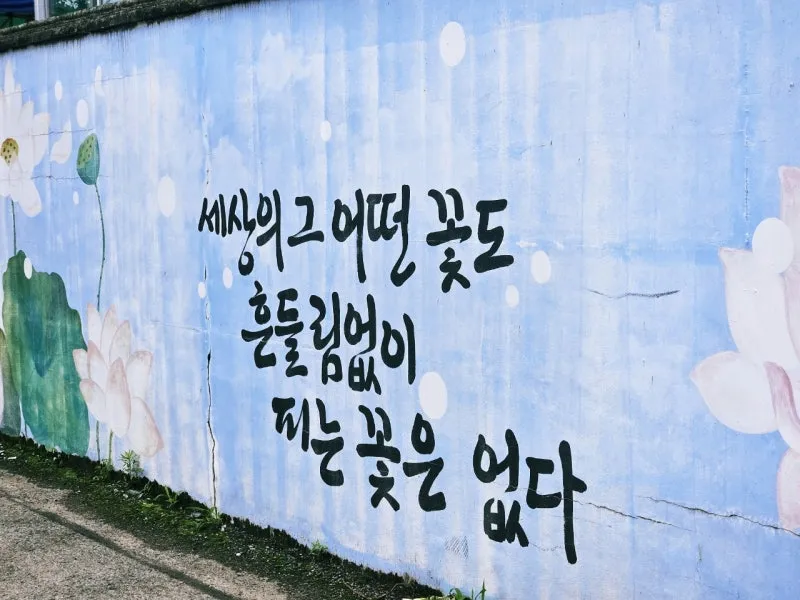 세상의 그 어떤 꽃도
흔들림없이
피는 꽃은 없다